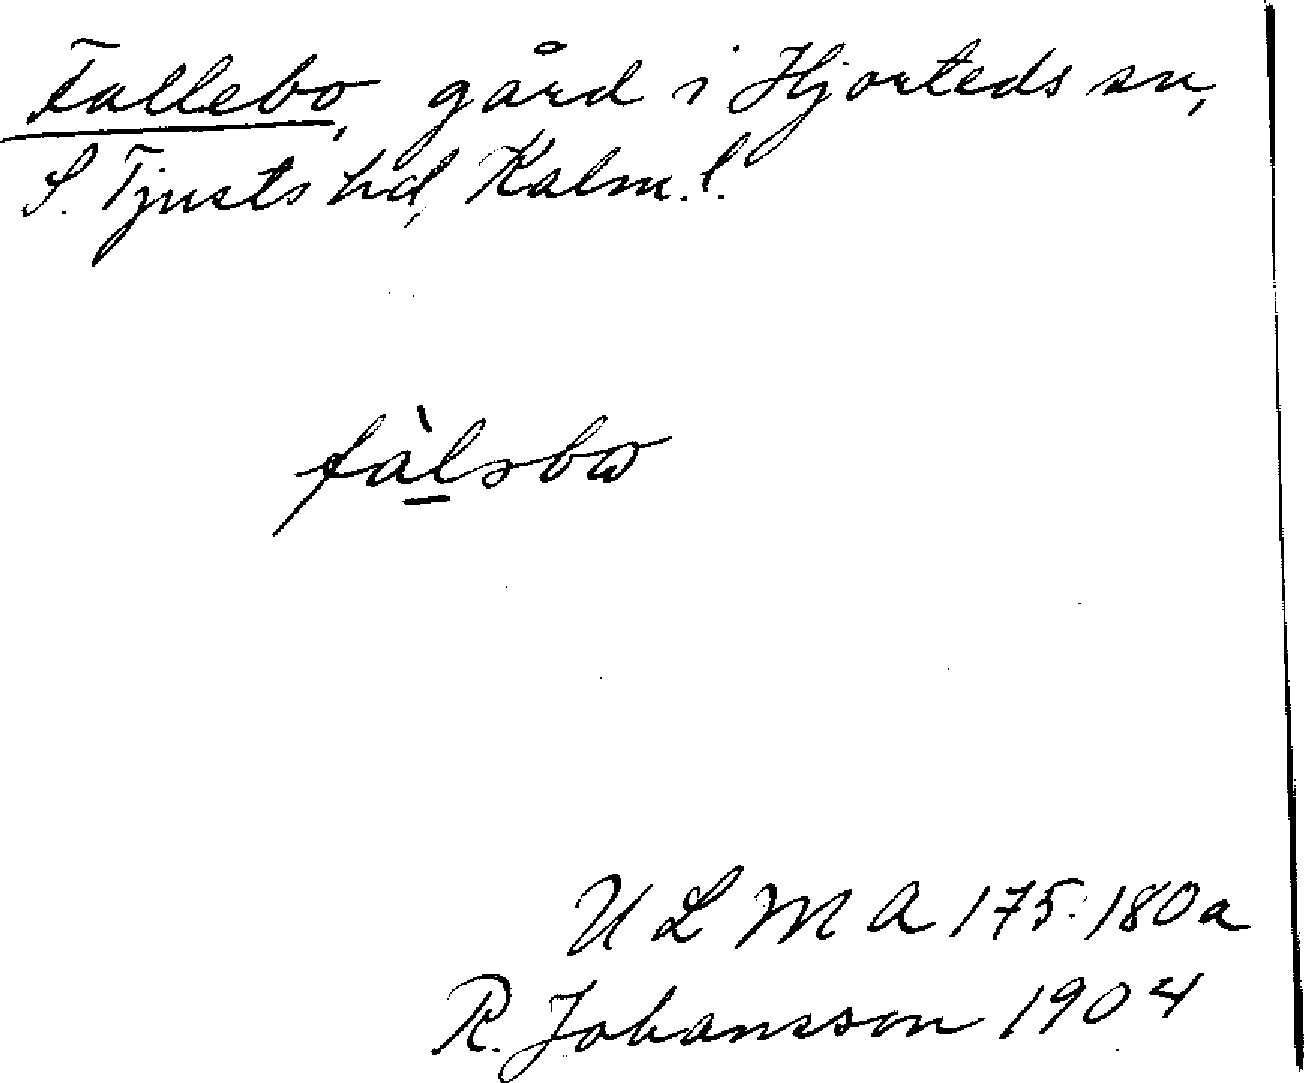 Fallebo, gård i Hjorteds sn,
S. Tjusts hd, Kalm. l.
fàl̠əbω
U L M A 175:180a
R. Johansson 1904